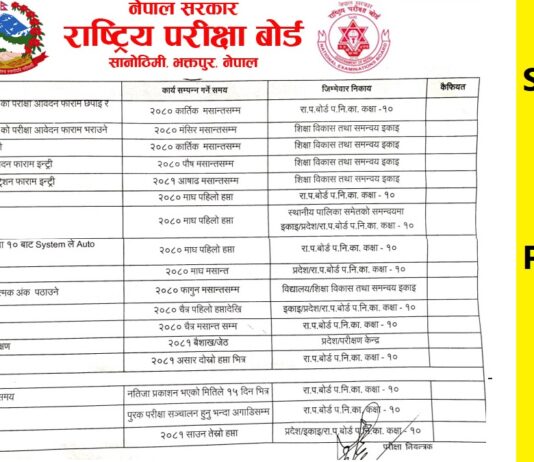 नेपाल सरकार
राष्ट्रिय परीक्षा बोर्ड
सानोठिमी, भक्तपुर, नेपाल
कार्य सम्पन्न गर्ने समय जिम्मेवार निकाय कैफियत
का परीक्षा आवेदन फाराम छपाइ र २०८० कार्तिक मसान्तसम्म रा.प.बोर्ड प.नि.का. कक्षा -१०
को परीक्षा आवेदन फाराम भराउने २०८० मंसिर मसान्तसम्म शिक्षा विकास तथा समन्वय इकाइ
२०८० कार्तिक मसान्तसम्म शिक्षा विकास तथा समन्वय इकाइ
दन फाराम इन्ट्री २०८० पौष मसान्तसम्म शिक्षा विकास तथा समन्वय इकाइ
ट्रेशन फाराम इन्ट्री २०८१ आषाढ मसान्तसम्म शिक्षा विकास तथा समन्वय इकाइ
२०८० माघ पहिलो हप्ता रा.प.बोर्ड प.नि.का. कक्षा - १०
२०८० माघ पहिलो हप्ता स्थानीय पालिका समेतको समन्वयमा
इकाइ/प्रदेश/रा.प.बोर्ड प.नि.का. कक्षा - १०
ा १० बाट System ले Auto २०८० माघ पहिलो हप्ता रा.प.बोर्ड प.नि.का. कक्षा - १०
२०८० माघ मसान्त प्रदेश/रा.प.बोर्ड प.नि.का. कक्षा - १०
त्मक अंक पठाउने २०८० फागुन मसान्तसम्म विद्यालय/शिक्षा विकास तथा समन्वय इकाइ
२०८० चैत्र पहिलो हप्तादेखि इकाइ/प्रदेश/रा.प.बोर्ड प.नि.का. कक्षा - १०
२०८० चैत्र मसान्त सम्म रा.प.बोर्ड प.नि.का. कक्षा - १०
क्षण २०८१ बैशाख/जेठ प्रदेश/परीक्षण केन्द्र
२०८१ असार दोस्रो हप्ता भित्र रा.प.बोर्ड प.नि.का. कक्षा - १०
समय नतिजा प्रकाशन भएको मितिले १५ दिन भित्र रा.प.बोर्ड प.नि.का. कक्षा - १०
पुरक परीक्षा सञ्चालन हुनु भन्दा अगाडिसम्म रा.प.बोर्ड प.नि.का. कक्षा - १०
२०८१ साउन तेस्रो हप्ता प्रदेश/इकाइ/रा.प.बोर्ड प.नि.का. कक्षा - १०
परीक्षा नियन्त्रक
S
P